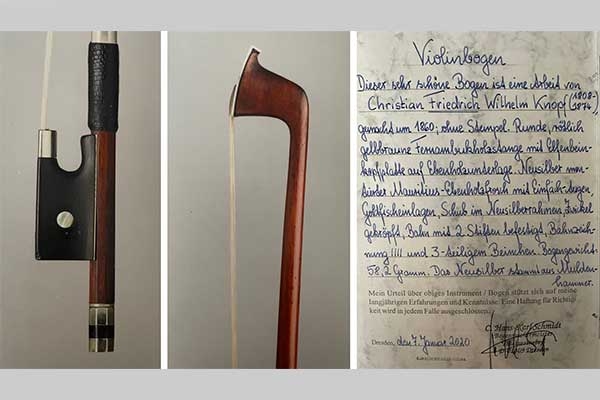 Violinbogen
Dieser sehr schöne Bogen ist eine Arbeit von
Christian Friedrich Wilhelm Knopf (1808-
1874)
gemacht um 1860; ohne Stempel. Runde, rötlich
gelbbraune Fernambukholzstange mit Elfenbein-
kopfplatte auf Ebenholzunterlage. Neusilber mon-
tierter Mauritius-Ebenholzfrosch mit Einfach-Augen,
Goldfischeinlagen, Schub im Neusilberrahmen, Zwickel
gekröpft, Bahn mit 2 Stiften befestigt, Bahnzeich-
nung IIII und 3-teiligem Beinchen. Bogengewicht:
58,2 Gramm. Das Neusilber stammt aus Mulden-
hammer.
Mein Urteil über obiges Instrument / Bogen stützt sich auf meine
langjährigen Erfahrungen und Kenntnisse. Eine Haftung für Richtig-
keit wird in jedem Falle ausgeschlossen.
C. Hans-Karl Schmidt
Dresden, den 7. Januar 2020